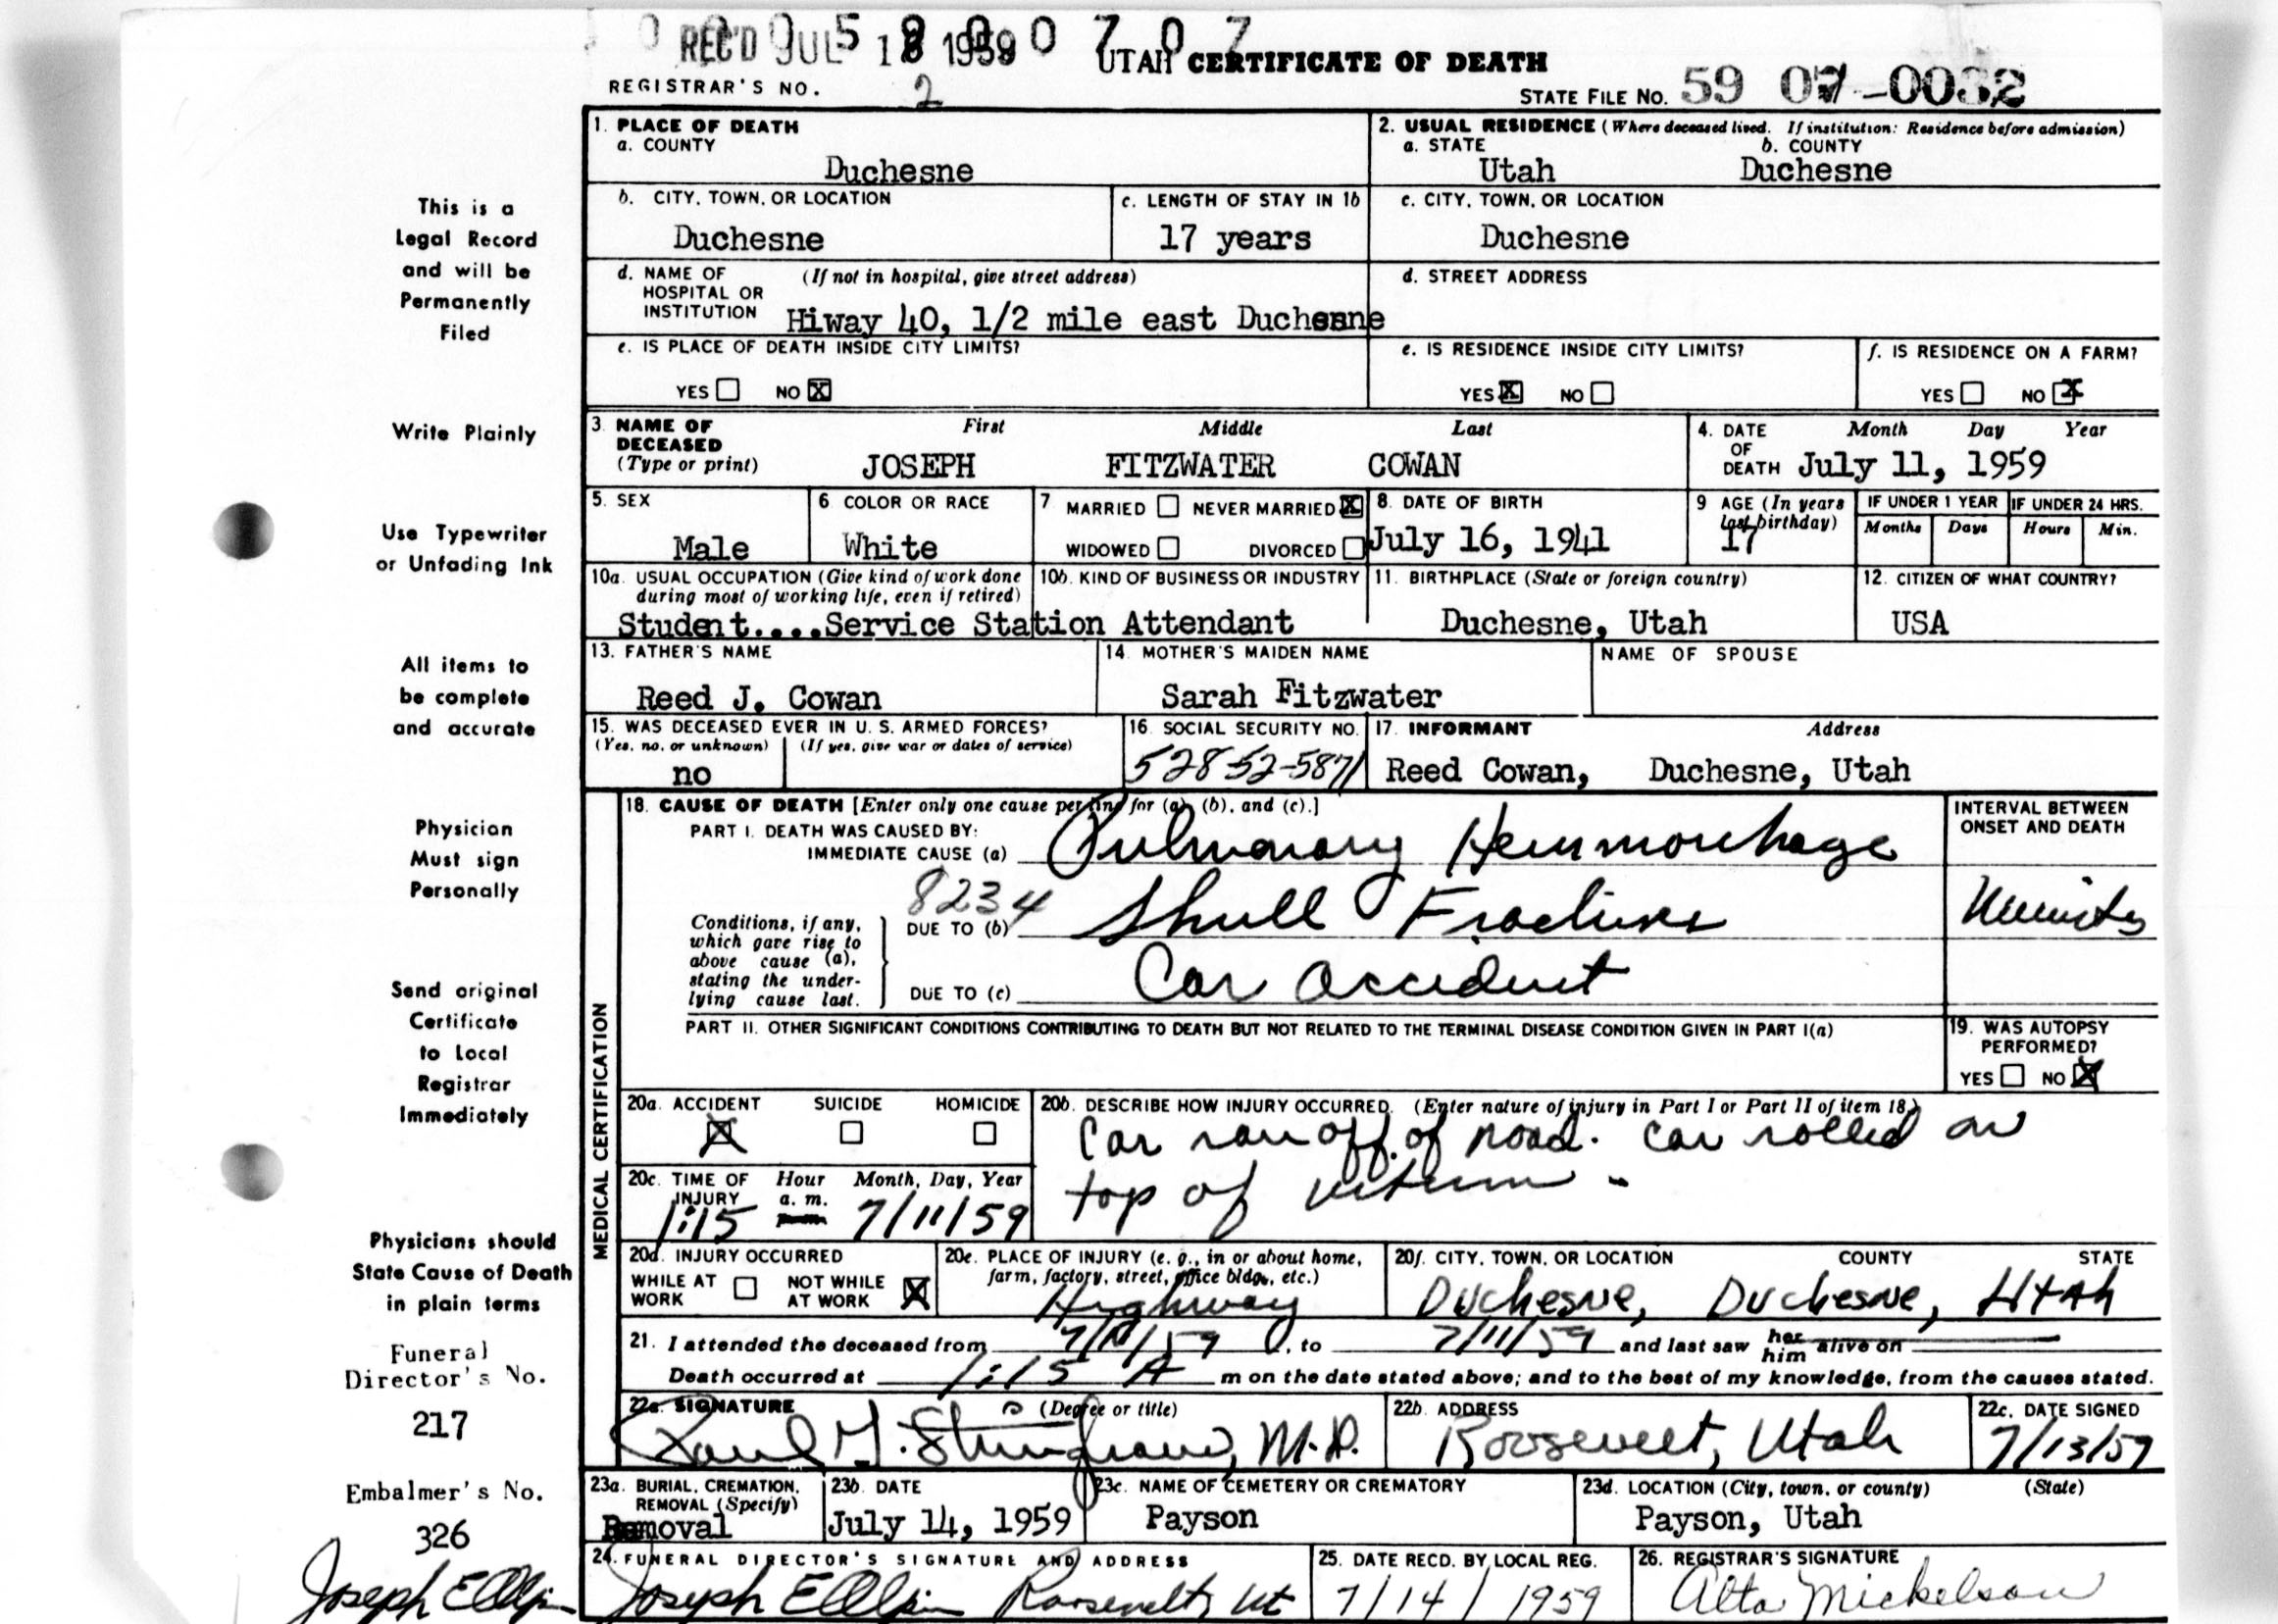 REC'D JUL 18 1959
UTAH CERTIFICATE OF DEATH
REGISTRAR'S NO. 2
STATE FILE NO. 59 07-0032
1. PLACE OF DEATH
a. COUNTY
Duchesne
2. USUAL RESIDENCE (Where deceased lived. If institution: Residence before admission)
a. STATE b. COUNTY
Utah Duchesne
b. CITY, TOWN, OR LOCATION
Duchesne
c. LENGTH OF STAY IN 1b
17 years
c. CITY, TOWN, OR LOCATION
Duchesne
d. NAME OF HOSPITAL OR INSTITUTION (If not in hospital, give street address)
Hiway 40, 1/2 mile east Duchesne
d. STREET ADDRESS
e. IS PLACE OF DEATH INSIDE CITY LIMITS?
YES NO X
e. IS RESIDENCE INSIDE CITY LIMITS?
YES X NO
f. IS RESIDENCE ON A FARM?
YES NO X
3. NAME OF DECEASED (Type or print)
First Middle Last
JOSEPH FITZWATER COWAN
4. DATE OF DEATH Month Day Year
July 11, 1959
5. SEX
Male
6 COLOR OR RACE
White
7 MARRIED NEVER MARRIED X
WIDOWED DIVORCED
8. DATE OF BIRTH
July 16, 1941
9 AGE (In years last birthday)
17
IF UNDER 1 YEAR IF UNDER 24 HRS.
Months Days Hours Min.
10a. USUAL OCCUPATION (Give kind of work done during most of working life, even if retired)
10b. KIND OF BUSINESS OR INDUSTRY
Student....Service Station Attendant
11. BIRTHPLACE (State or foreign country)
Duchesne, Utah
12. CITIZEN OF WHAT COUNTRY?
USA
13. FATHER'S NAME
Reed J. Cowan
14. MOTHER'S MAIDEN NAME
Sarah Fitzwater
NAME OF SPOUSE
15. WAS DECEASED EVER IN U. S. ARMED FORCES?
(Yes, no, or unknown) (If yes, give war or dates of service)
no
16. SOCIAL SECURITY NO.
528-52-5871
17. INFORMANT Address
Reed Cowan, Duchesne, Utah
MEDICAL CERTIFICATION
18. CAUSE OF DEATH [Enter only one cause per line for (a), (b), and (c).]
PART I. DEATH WAS CAUSED BY:
IMMEDIATE CAUSE (a) Pulmonary Hemmorrhage
8234
Conditions, if any, which gave rise to above cause (a), stating the underlying cause last.
DUE TO (b) Skull Fracture
DUE TO (c) Car accident
INTERVAL BETWEEN ONSET AND DEATH
Minutes
PART II. OTHER SIGNIFICANT CONDITIONS CONTRIBUTING TO DEATH BUT NOT RELATED TO THE TERMINAL DISEASE CONDITION GIVEN IN PART I(a)
19. WAS AUTOPSY PERFORMED?
YES NO X
20a. ACCIDENT SUICIDE HOMICIDE
X
20b. DESCRIBE HOW INJURY OCCURRED. (Enter nature of injury in Part I or Part II of item 18.)
Car ran off of road. Car rolled on
top of victim -
20c. TIME OF INJURY Hour Month, Day, Year
1:15 a. m. p. m. 7/11/59
20d. INJURY OCCURRED
WHILE AT WORK NOT WHILE AT WORK X
20e. PLACE OF INJURY (e. g., in or about home, farm, factory, street, office bldg., etc.)
Highway
20f. CITY, TOWN, OR LOCATION COUNTY STATE
Duchesne, Duchesne, Utah
21. I attended the deceased from 7/11/59, to 7/11/59 and last saw her him alive on
Death occurred at 1:15 A m on the date stated above; and to the best of my knowledge, from the causes stated.
22a. SIGNATURE (Degree or title)
Paul G. Stringham, M.D.
22b. ADDRESS
Roosevelt, Utah
22c. DATE SIGNED
7/13/59
23a. BURIAL, CREMATION, REMOVAL (Specify)
Removal
23b. DATE
July 14, 1959
23c. NAME OF CEMETERY OR CREMATORY
Payson
23d. LOCATION (City, town, or county) (State)
Payson, Utah
24. FUNERAL DIRECTOR'S SIGNATURE AND ADDRESS
Joseph E Roosevelt, Ut
25. DATE RECD. BY LOCAL REG.
7/14/1959
26. REGISTRAR'S SIGNATURE
Alta Mickelson
This is a
Legal Record
and will be
Permanently
Filed
Write Plainly
Use Typewriter
or Unfading Ink
All items to
be complete
and accurate
Physician
Must sign
Personally
Send original
Certificate
to Local
Registrar
Immediately
Physicians should
State Cause of Death
in plain terms
Funeral
Director's No.
217
Embalmer's No.
326
Joseph E